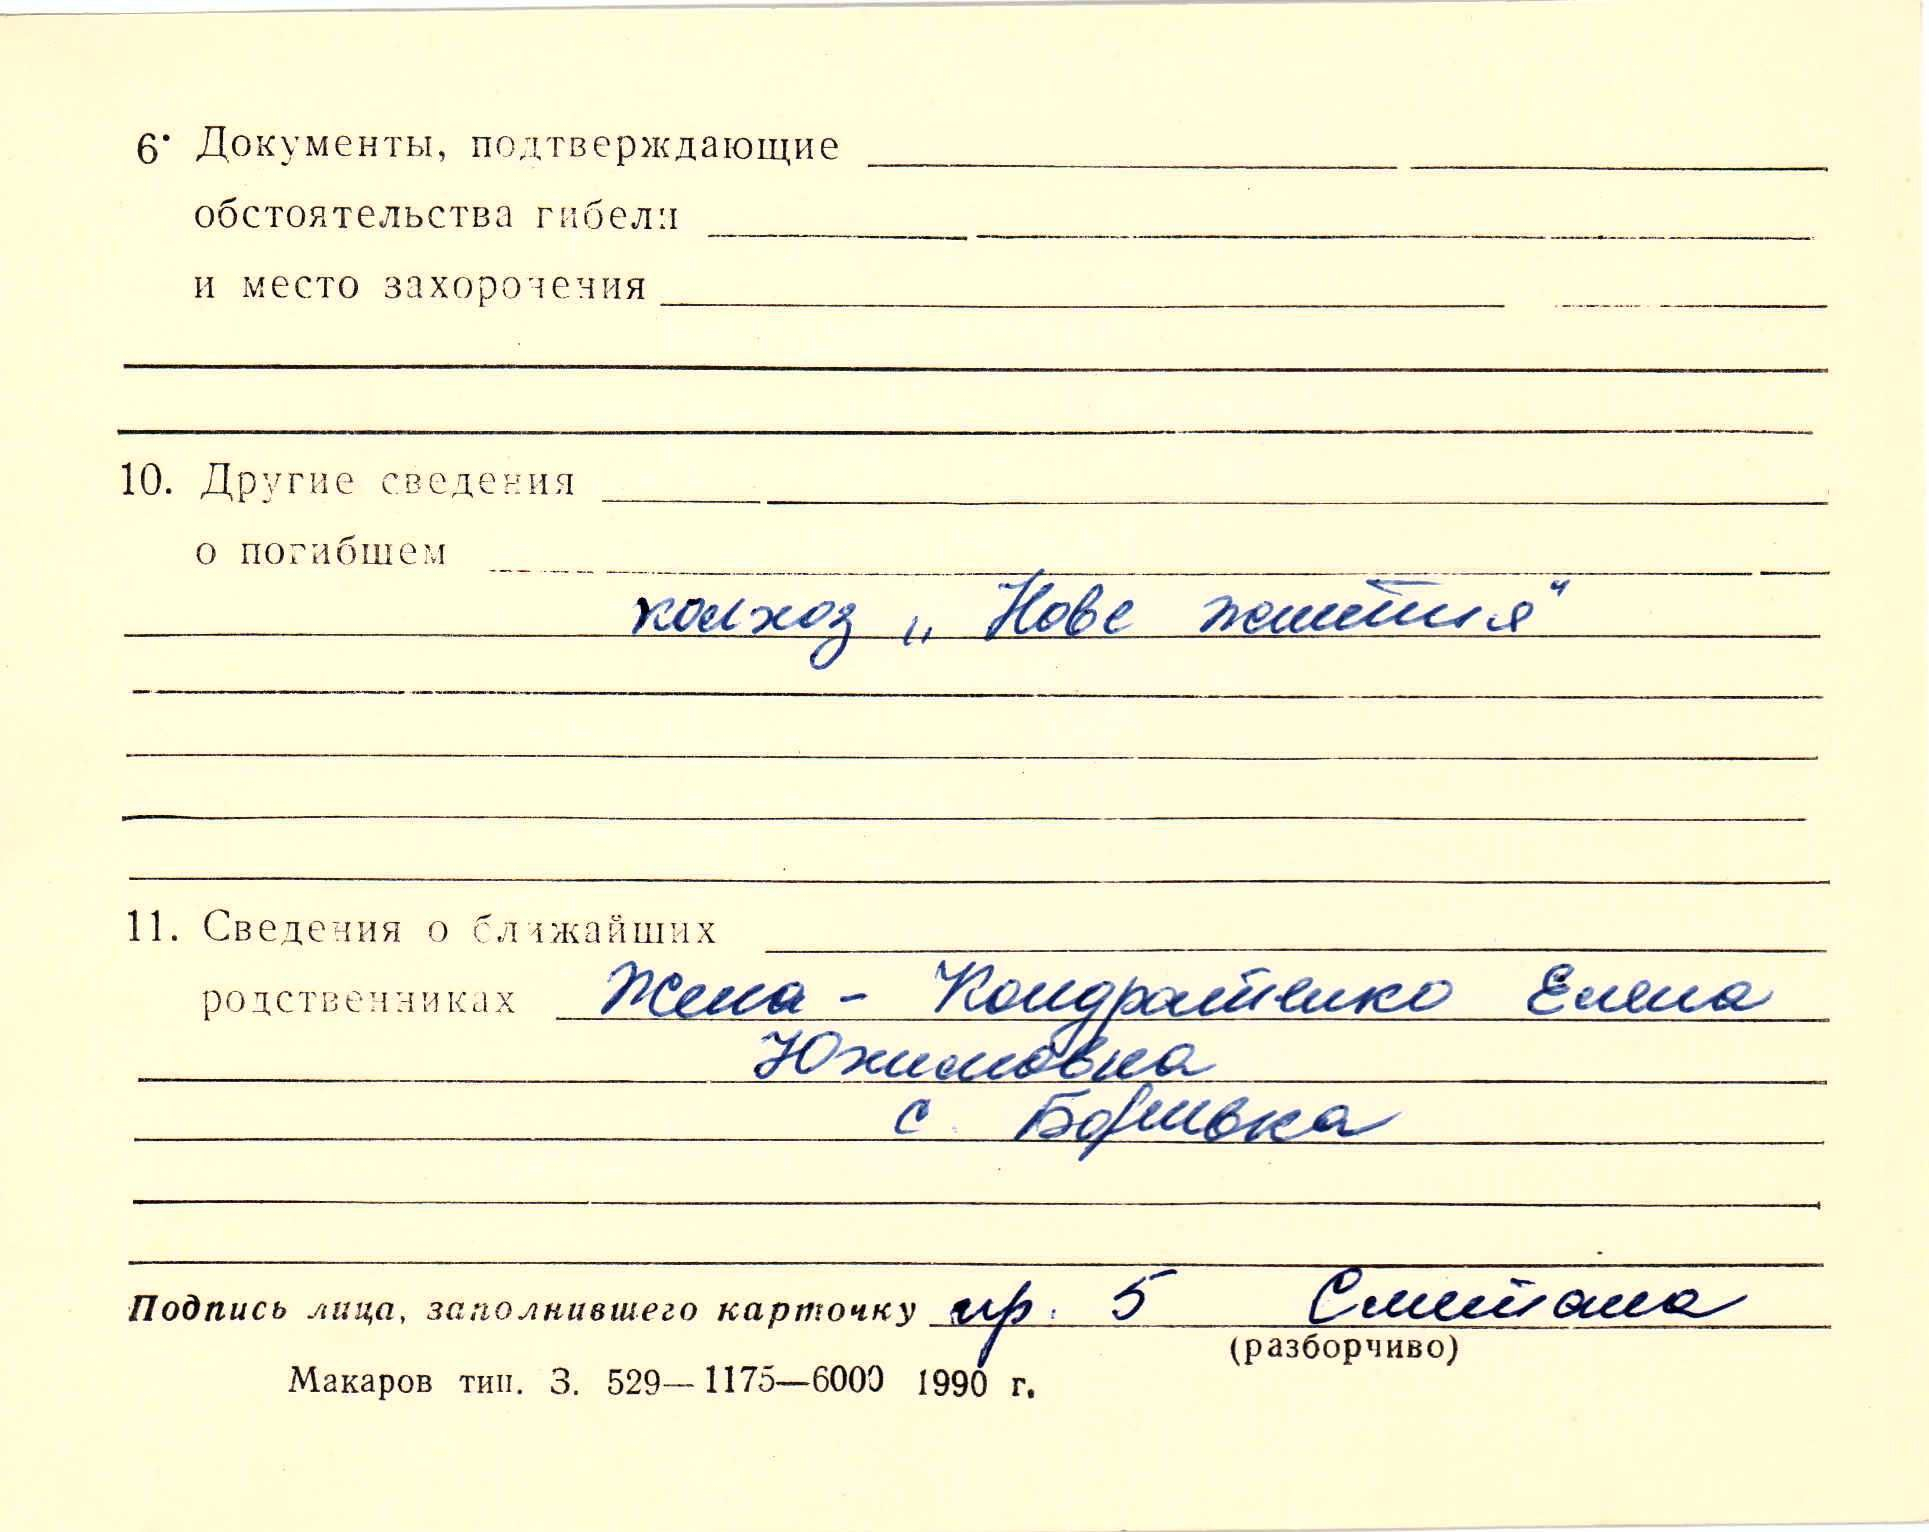 6. Документы, подтверждающие
обстоятельства гибели
и место захоронения
10. Другие сведения
о погибшем
колхоз „Нове життя“
11. Сведения о ближайших
родственниках Жена - Кондратенко Елена
Юхимовна
с. Боривка
Подпись лица, заполнившего карточку пр. 5 Сметана
(разборчиво)
Макаров тип. З. 529—1175—6000 1990 г.